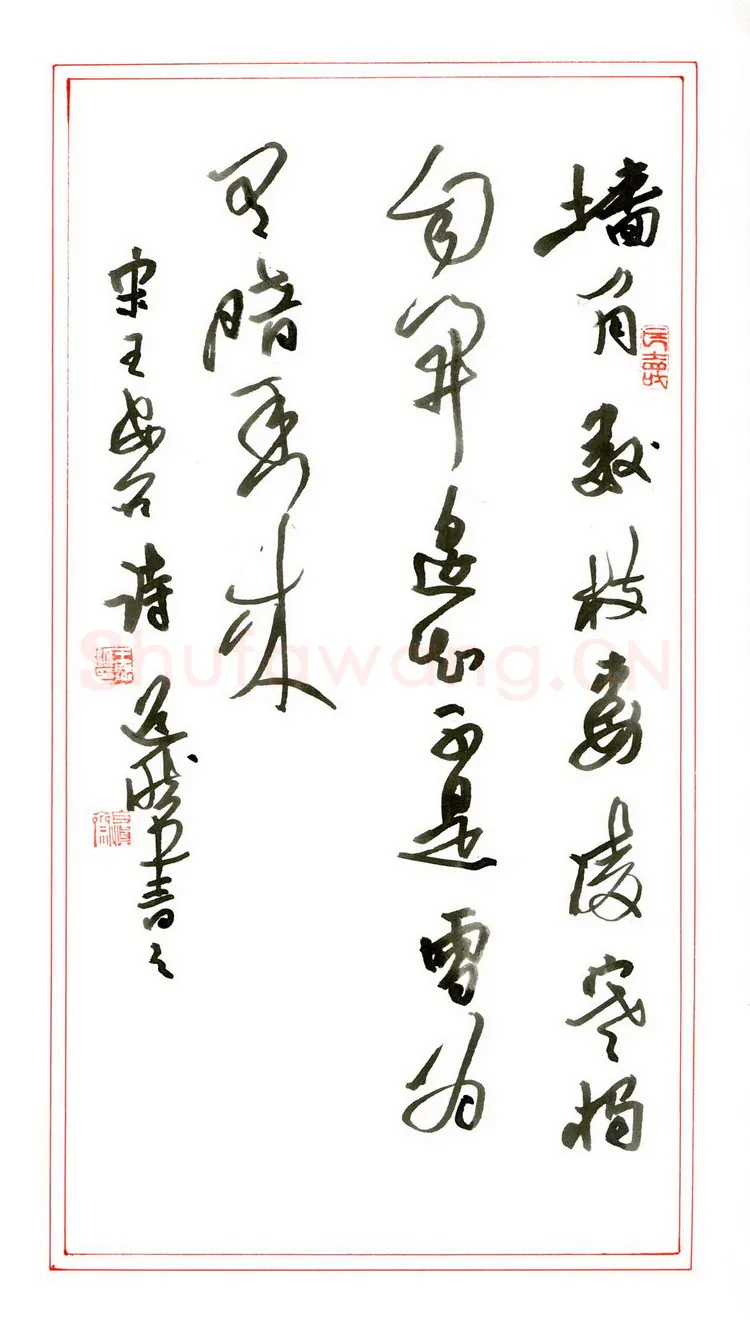 墙角数枝梅凌寒独
自開遥知不是雪为
有暗香来
宋王安石诗
書之
Shufawang.CN